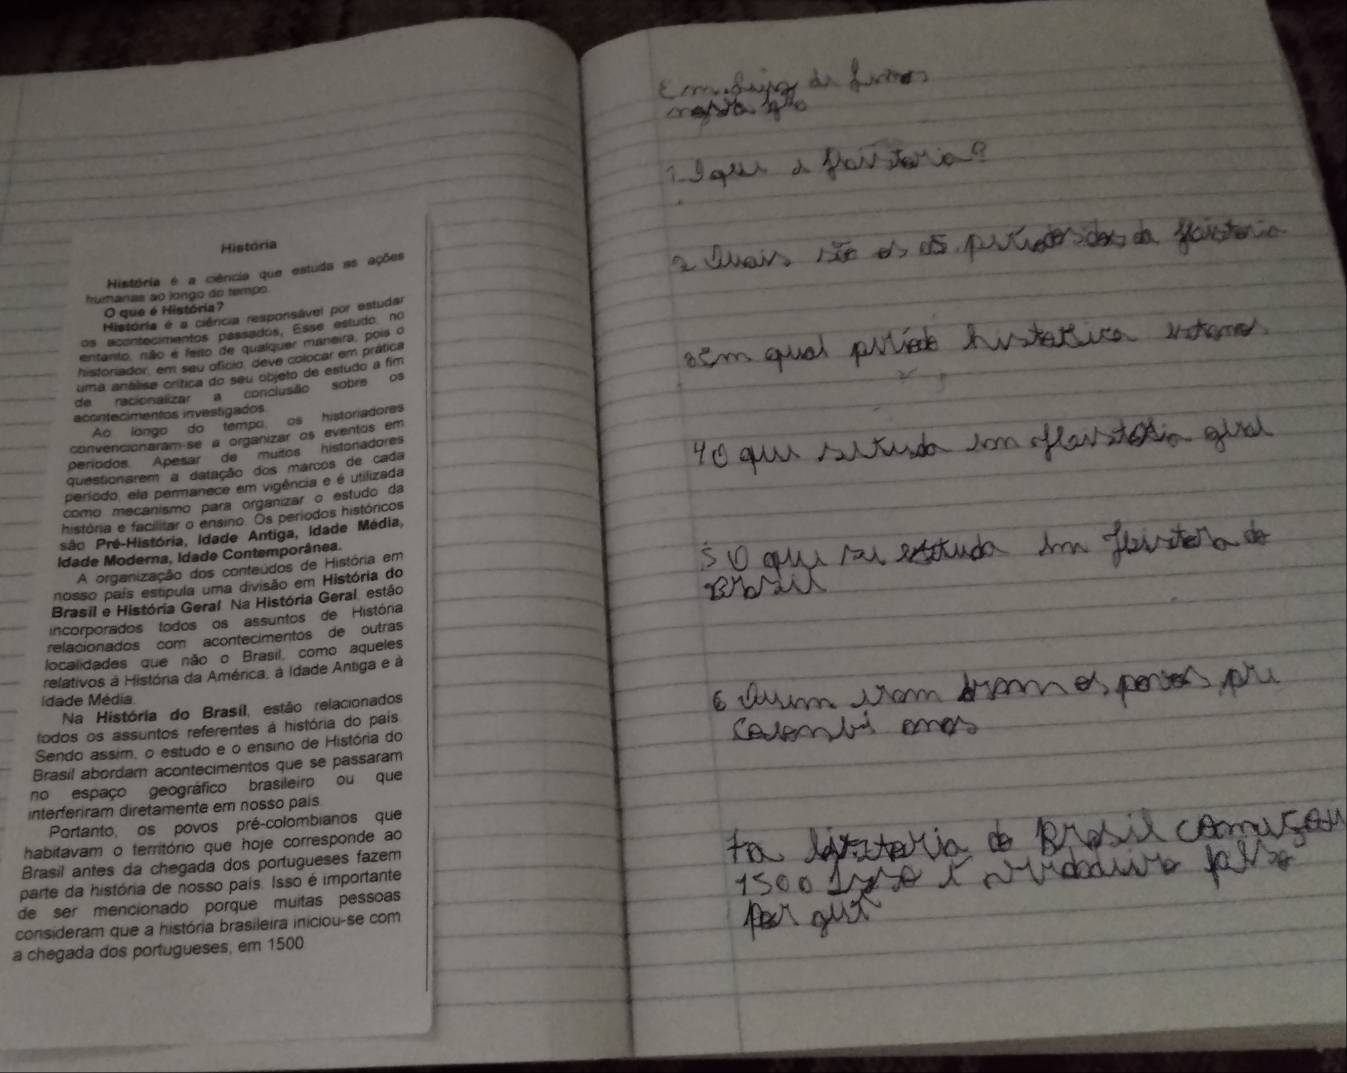 História
História é a ciência que estuda as ações
humanas ao longo do tempo.
O que é História?
História é a ciência responsável por estudar
os acontecimentos passados. Esse estudo, no
entanto, não é feito de qualquer maneira, pois o
historiador, em seu ofício, deve colocar em prática
uma análise crítica do seu objeto de estudo a fim
de racionalizar a conclusão sobre os
acontecimentos investigados.
Ao longo do tempo, os historiadores
convencionaram-se a organizar os eventos em
períodos. Apesar de muitos historiadores
questionarem a datação dos marcos de cada
período, ela permanece em vigência e é utilizada
como mecanismo para organizar o estudo da
história e facilitar o ensino. Os períodos históricos
são Pré-História, Idade Antiga, Idade Média,
Idade Moderna, Idade Contemporânea.
A organização dos conteúdos de História em
nosso país estipula uma divisão em História do
Brasil e História Geral. Na História Geral, estão
incorporados todos os assuntos de História
relacionados com acontecimentos de outras
localidades que não o Brasil, como aqueles
relativos à História da América, à Idade Antiga e à
Idade Média.
Na História do Brasil, estão relacionados
todos os assuntos referentes à história do país.
Sendo assim, o estudo e o ensino de História do
Brasil abordam acontecimentos que se passaram
no espaço geográfico brasileiro ou que
interferiram diretamente em nosso país.
Portanto, os povos pré-colombianos que
habitavam o território que hoje corresponde ao
Brasil antes da chegada dos portugueses fazem
parte da história de nosso país. Isso é importante
de ser mencionado porque muitas pessoas
consideram que a história brasileira iniciou-se com
a chegada dos portugueses, em 1500
1 O que
2 Quais são os da
3 Em qual
4 O que em
5 O que se estuda em
Brasil
6 os povos pré
do Brasil começou
1500 é falso
Por que